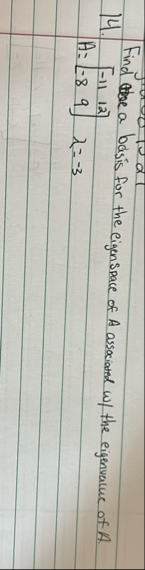 14. Find a basis for the eigenspace of A associated w/ the eigenvalue of A.
A = [-11 12
-8 9] λ = -3